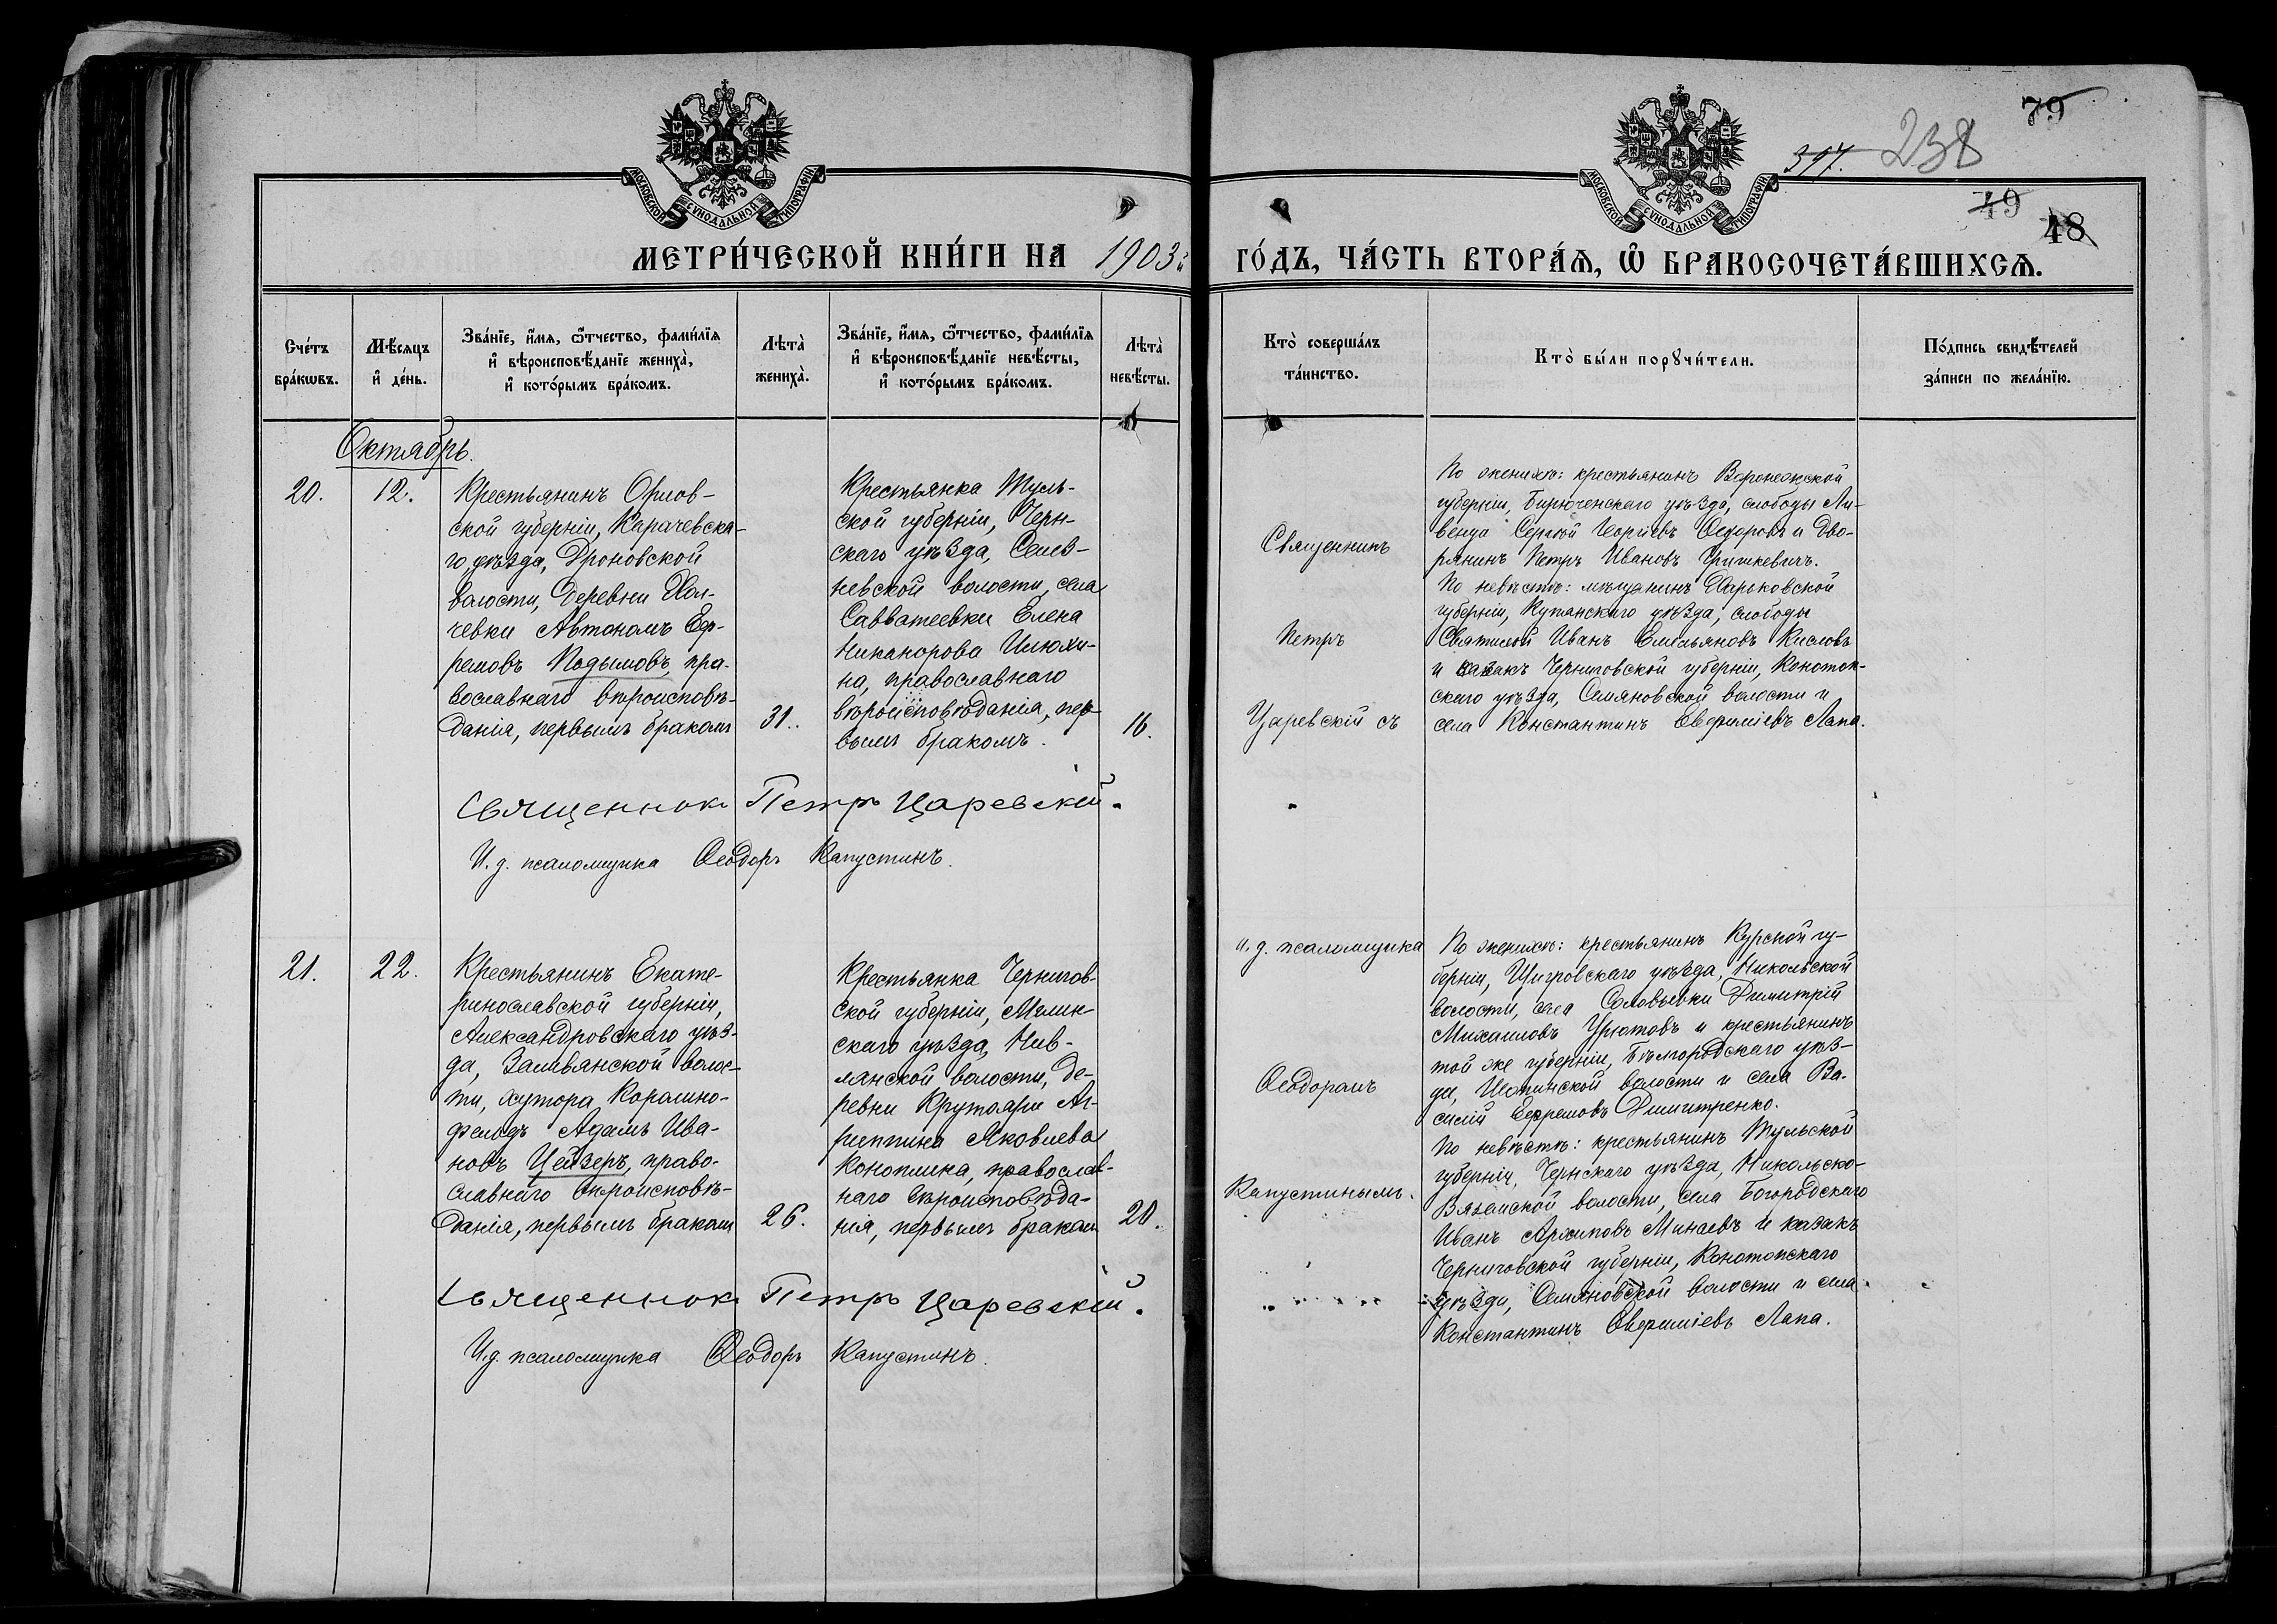 79
397.
238
49
48
МОСКОВСКОЙ СѴНОДАЛЬНОЙ ТИПОГРАФІИ
МОСКОВСКОЙ СѴНОДАЛЬНОЙ ТИПОГРАФІИ
МЕТРИ́ЧЕСКОЙ КНИ́ГИ НА 1903й
ГО́ДЪ, ЧА́СТЬ ВТОРА́Ѧ, Ѡ҆ БРАКОСОЧЕТА́ВШИХСѦ.
Сче́тъ
бра́кѡвъ.
Мѣ́сяцъ
и҆ де́нь.
Зва́нїе, и҆́мѧ, ѻ҆́тчество, фами́лїѧ
и҆ вѣроисповѣ́данїе жениха̀,
и҆ кото́рымъ бра́комъ.
Лѣта̀
жениха̀.
Зва́нїе, и҆́мѧ, ѻ҆́тчество, фами́лїѧ
и҆ вѣроисповѣ́данїе невѣ́сты,
и҆ кото́рымъ бра́комъ.
Лѣта̀
невѣ́сты.
Кто̀ соверша́лъ
та́инство.
Кто̀ бы́ли порꙋчи́тели.
По́дпись свидѣ́телей
за́писи по жела́нїю.
Октябрь.
20.
12.
Крестьянинъ Орлов-
ской губерніи, Карачевска-
го уѣзда, Дроновской
волости, деревни Хол-
чевки Автономъ Еф-
ремовъ Подымовъ, пра-
вославнаго вѣроисповѣ-
данія, первымъ бракомъ
31.
Крестьянка Туль-
ской губерніи, Черн-
скаго уѣзда,
невской волости, села
Савватеевки Елена
Никанорова Илюхи-
на, православнаго
вѣроисповѣданія, пер-
вымъ бракомъ.
16.
Священникъ
Петръ
Царевскій съ
По женихѣ: крестьянинъ Воронежской
губерніи, Бирюченскаго уѣзда, слободы Ли-
венца Сергѣй Георгіевъ Ѳедоровъ и дво-
рянинъ Петръ Ивановъ Гришкевичъ.
По невѣстѣ: мѣщанинъ Харьковской
губерніи, Купянскаго уѣзда, слободы
Сватовой Иванъ Емельяновъ Кисловъ
и казакъ Черниговской губерніи, Конотоп-
скаго уѣзда, Семяновской волости и
села Константинъ Евфиміевъ Лапа.
Священник Петръ Царевскій.
И. д. псаломщика Ѳеодоръ Капустинъ.
21.
22.
Крестьянинъ Екате-
ринославской губерніи,
Александровскаго уѣз-
да, волос-
ти, хутора
фельдъ Адамъ Ива-
новъ Цейзеръ, право-
славнаго вѣроисповѣ-
данія, первымъ бракомъ
26.
Крестьянка Чернигов-
ской губерніи, Мглин-
скаго уѣзда, Нив-
лянской волости, де-
ревни Крутояри Аг-
риппина Яковлева
Коноплина, православ-
наго вѣроисповѣда-
нія, первымъ бракомъ
20.
и. д. псаломщика
Ѳеодоромъ
Капустинымъ.
По женихѣ: крестьянинъ Курской гу-
берніи, Щигровскаго уѣзда, Никольской
волости, села Соловьевки Димитрій
Михаиловъ и крестьянинъ
той же губерніи, Бѣлгородскаго уѣз-
да, Шопинской волости и села Ва-
силій Ефремовъ Димитренко.
По невѣстѣ: крестьянинъ Тульской
губерніи, Чернскаго уѣзда, Никольско-
Вяземской волости, села Богородскаго
Иванъ Архиповъ Минаевъ и казакъ
Черниговской губерніи, Конотопскаго
уѣзда, Семяновской волости и села
Константинъ Евфиміевъ Лапа.
Священник Петръ Царевскій.
И. д. псаломщика Ѳеодоръ Капустинъ.